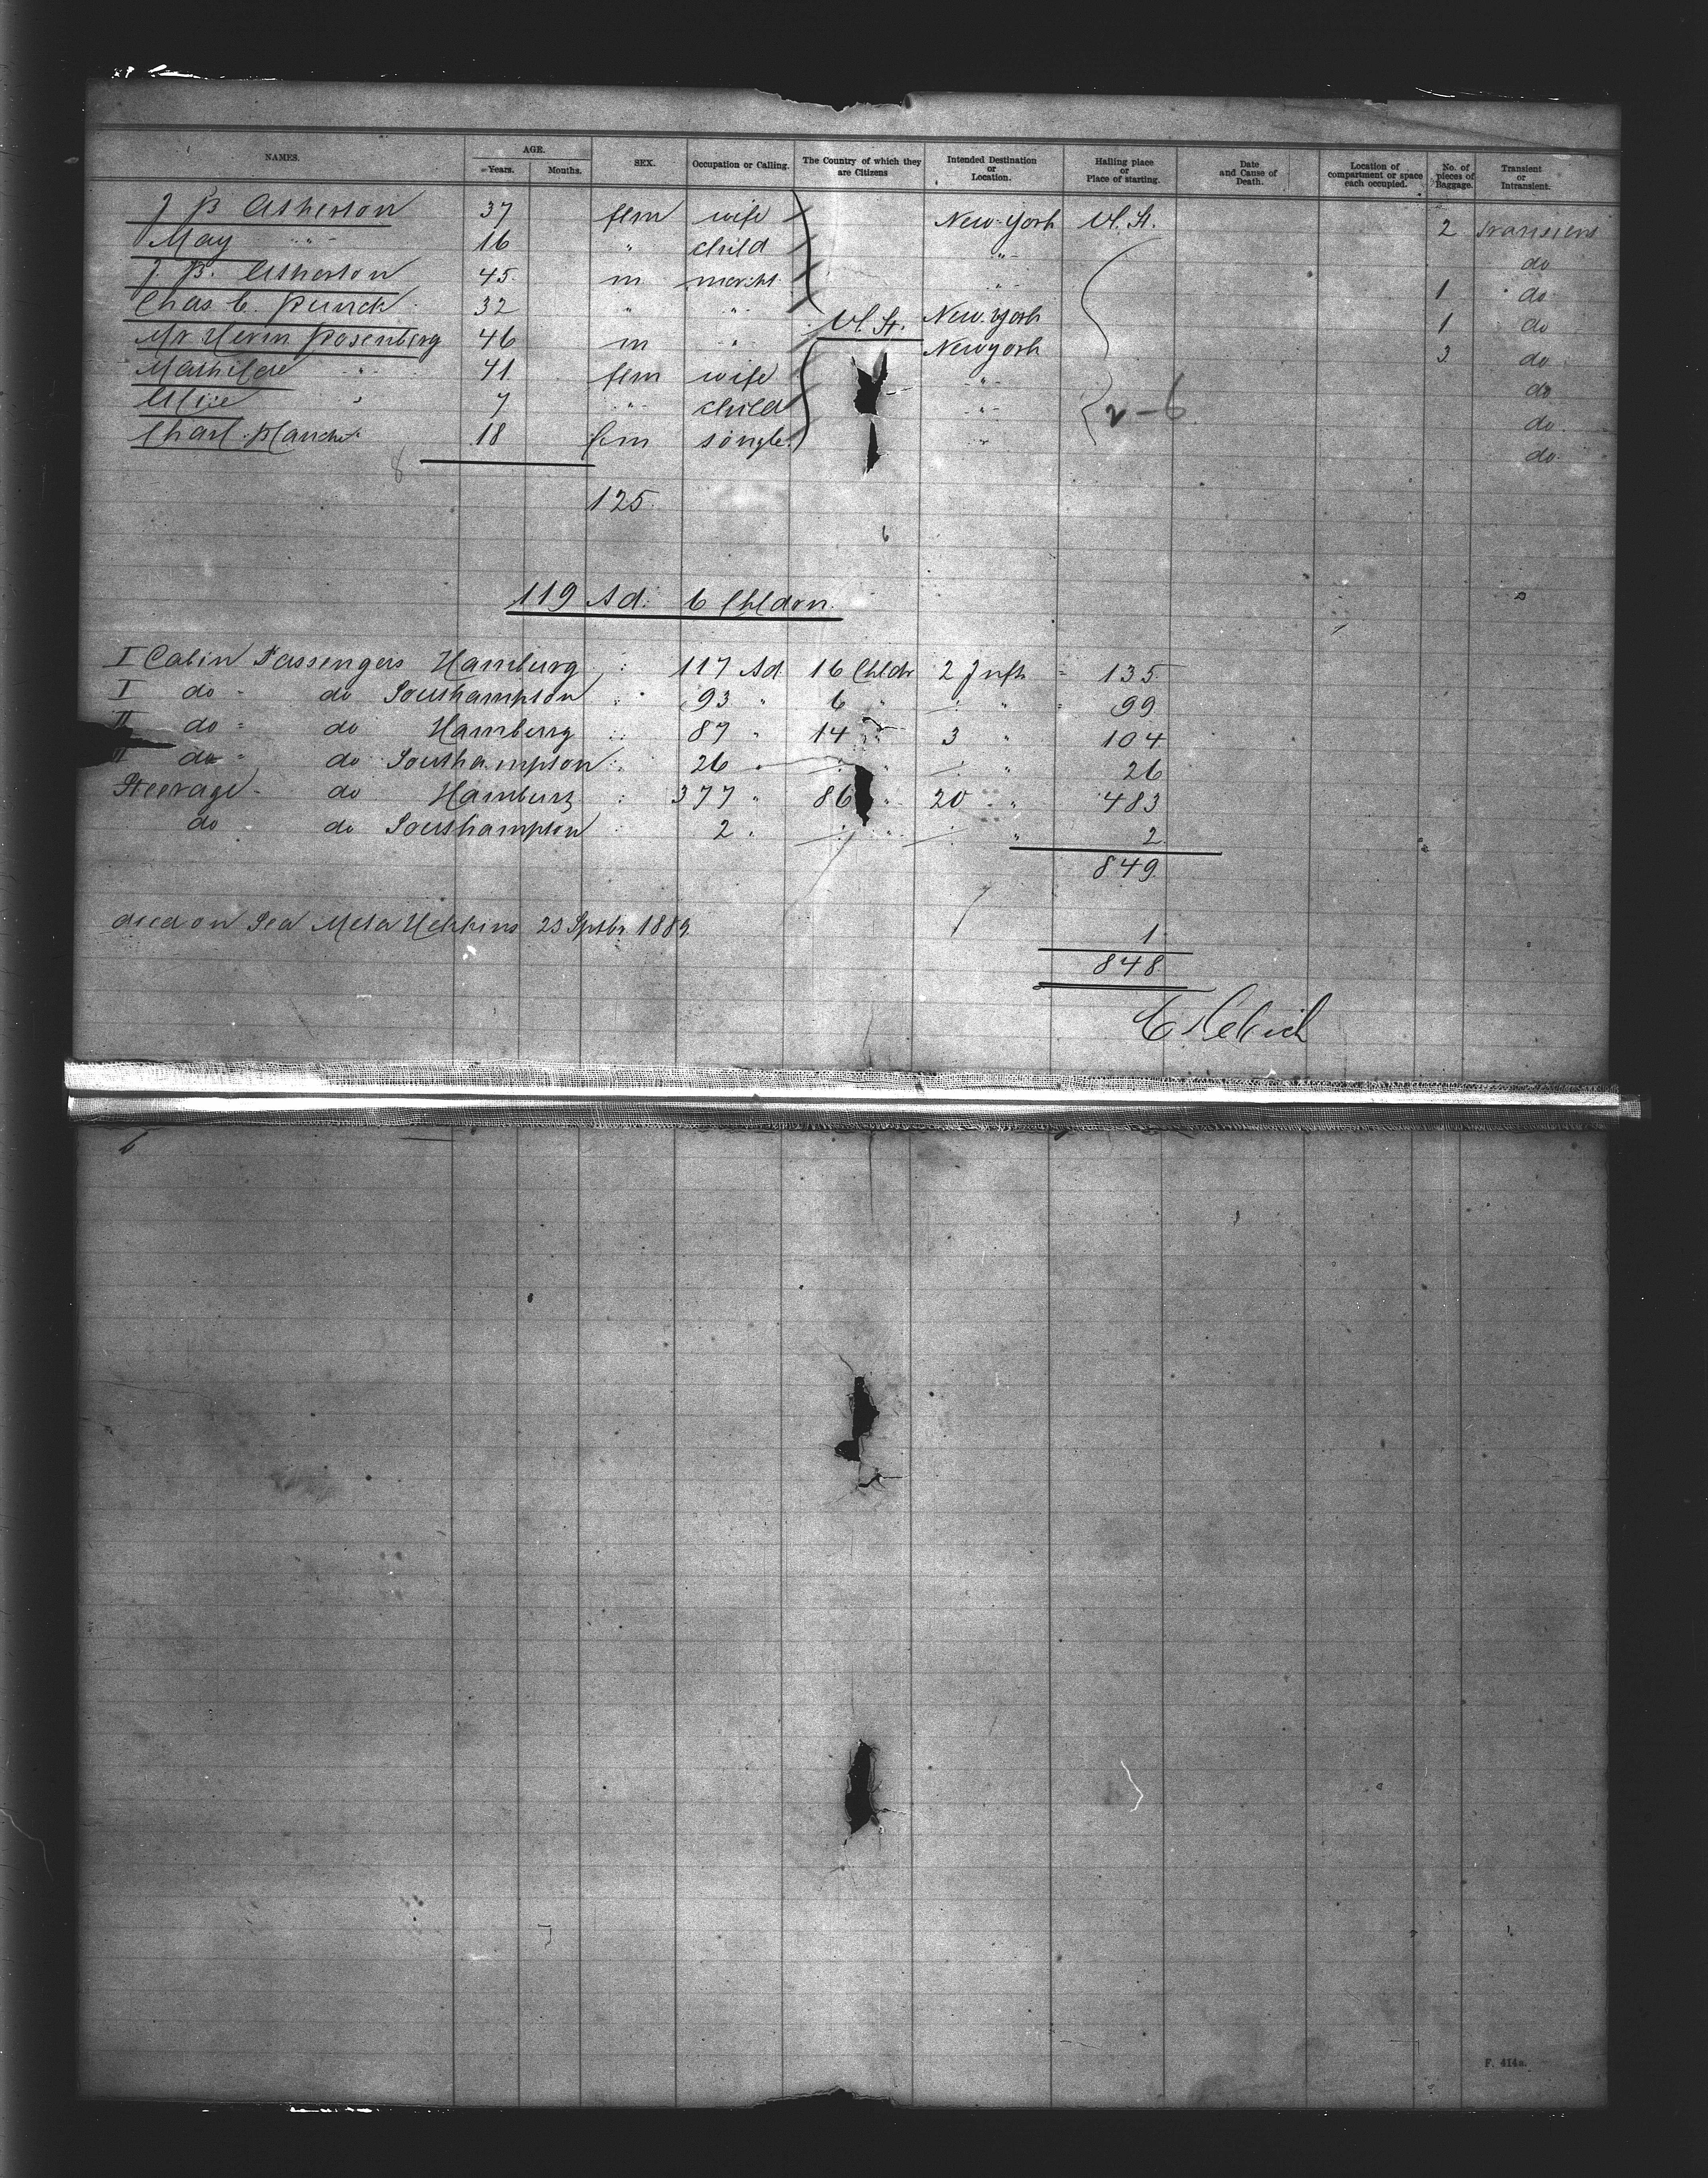 NAMES. AGE. Years. Months. SEX. Occupation or Calling. The Country of which they are Citizens Intended Destination or Location. Hailing place or Place of starting. Date and Cause of Death. Location of compartment or space each occupied. No. of pieces of Baggage. Transient or Intransient.
J B Atherton 37 fem wife New York U. St. 2 transient
May " 16 " child " do
J. B. Atherton 45 m mercht " 1 do
Chas C. 32 " " U. St. New York 1 do
Mr Herm Rosenberg 46 m " New York 3 do
Mathilde " 41 fem wife " do
Alice " 7 " child " 2-6 do
Charl. 18 fem single " do
8
125
119 Ad. 6 Chldrn
I Cabin Passengers Hamburg : 117 Ad 16 Chldr 2 Infts = 135
I do - do Southampton : 93 " 6 " / " = 99
II do - do Hamburg : 87 " 14 " 3 " 104
II do - do Southampton : 26 " / " / " 26
Steerage - do Hamburg : 377 " 86 " 20 " 483
do do Southampton : 2 " / " / " 2
849
died on Sea Meta 23 Sptbr 1889 1
848
F. 414a.